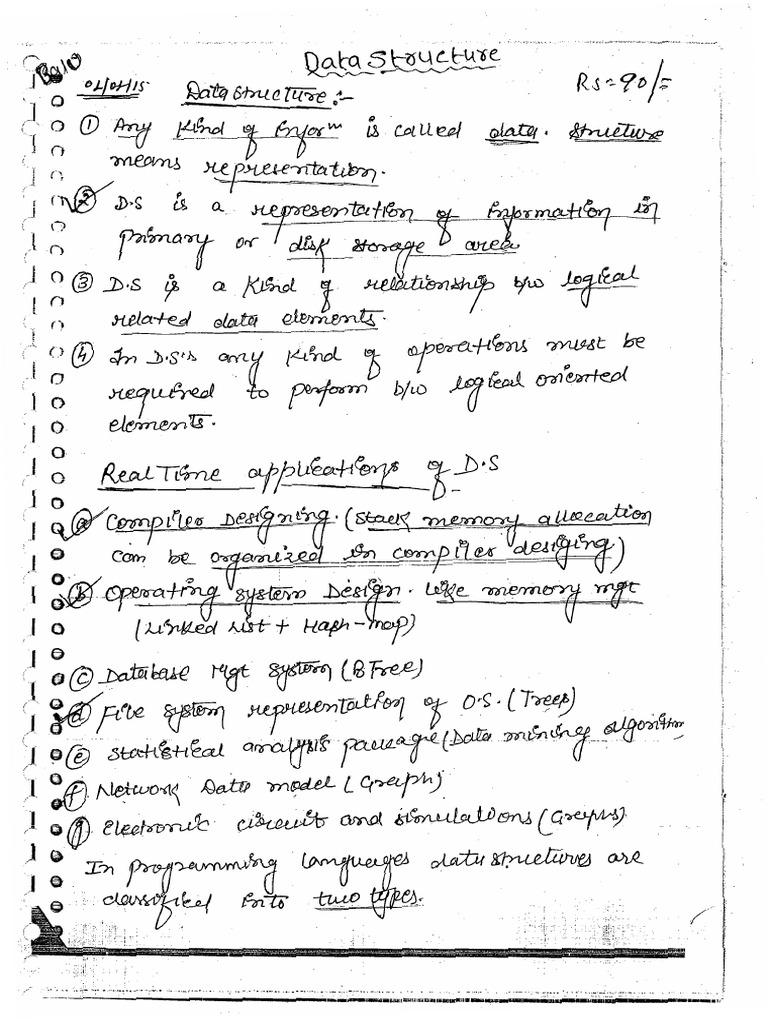 Data Structure
Rs = 90/=
04/04/15 Data structure:-
① Any Kind of Inforᵐ is called data. structure
means representation.
② D.S is a representation of Information in
primary or disk storage area
③ D.S is a kind of relationship b/w logical
related data elements.
④ In D.S's any kind of operations must be
required to perform b/w logical oriented
elements.
Real Time applications of D.S
ⓐ Compiler Designing. (Stack memory allocation
can be organized in compiler desiging)
ⓑ Operating system Design. Like memory mgt
(Linked List + Hash-map)
ⓒ Database Mgt system (B Tree)
ⓓ File system representation of O.S. (Trees)
ⓔ Statistical analysis package (Data mining algorithm
ⓕ Network Data model (Graph)
ⓖ Electronic circuit and simulations (Graphs)
In programming languages data structures are
classified into two types.